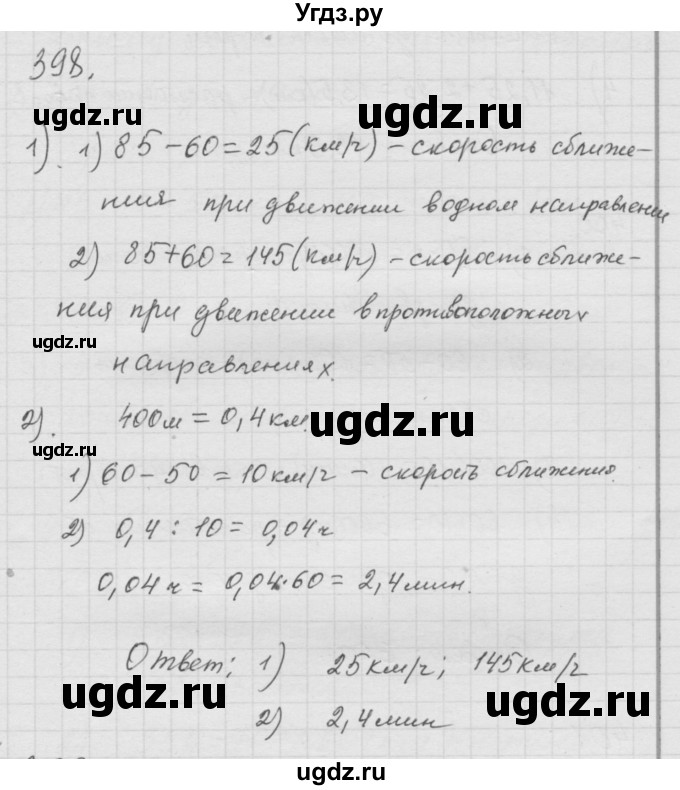 Угдз.ру
398.
ugdz.ru ugdz.ru
1). 1) 85-60=25(км/ч) - скорость сближе-
ния при движении в одном направлении
ugdz.ru
2) 85+60=145(км/ч) - скорость сближе-
ния при движении в противоположных
ugdz.ru
направлениях.
2). 400м = 0,4км.
ugdz.ru
ugdz.ru
1) 60-50=10км/ч - скорость сближения.
2) 0,4:10= 0,04ч
0,04ч = 0,04·60=2,4мин.
Ответ: 1) 25км/ч; 145км/ч
ugdz.ru ugdz.ru
2) 2,4мин
ugdz.ru
ugdz.ru